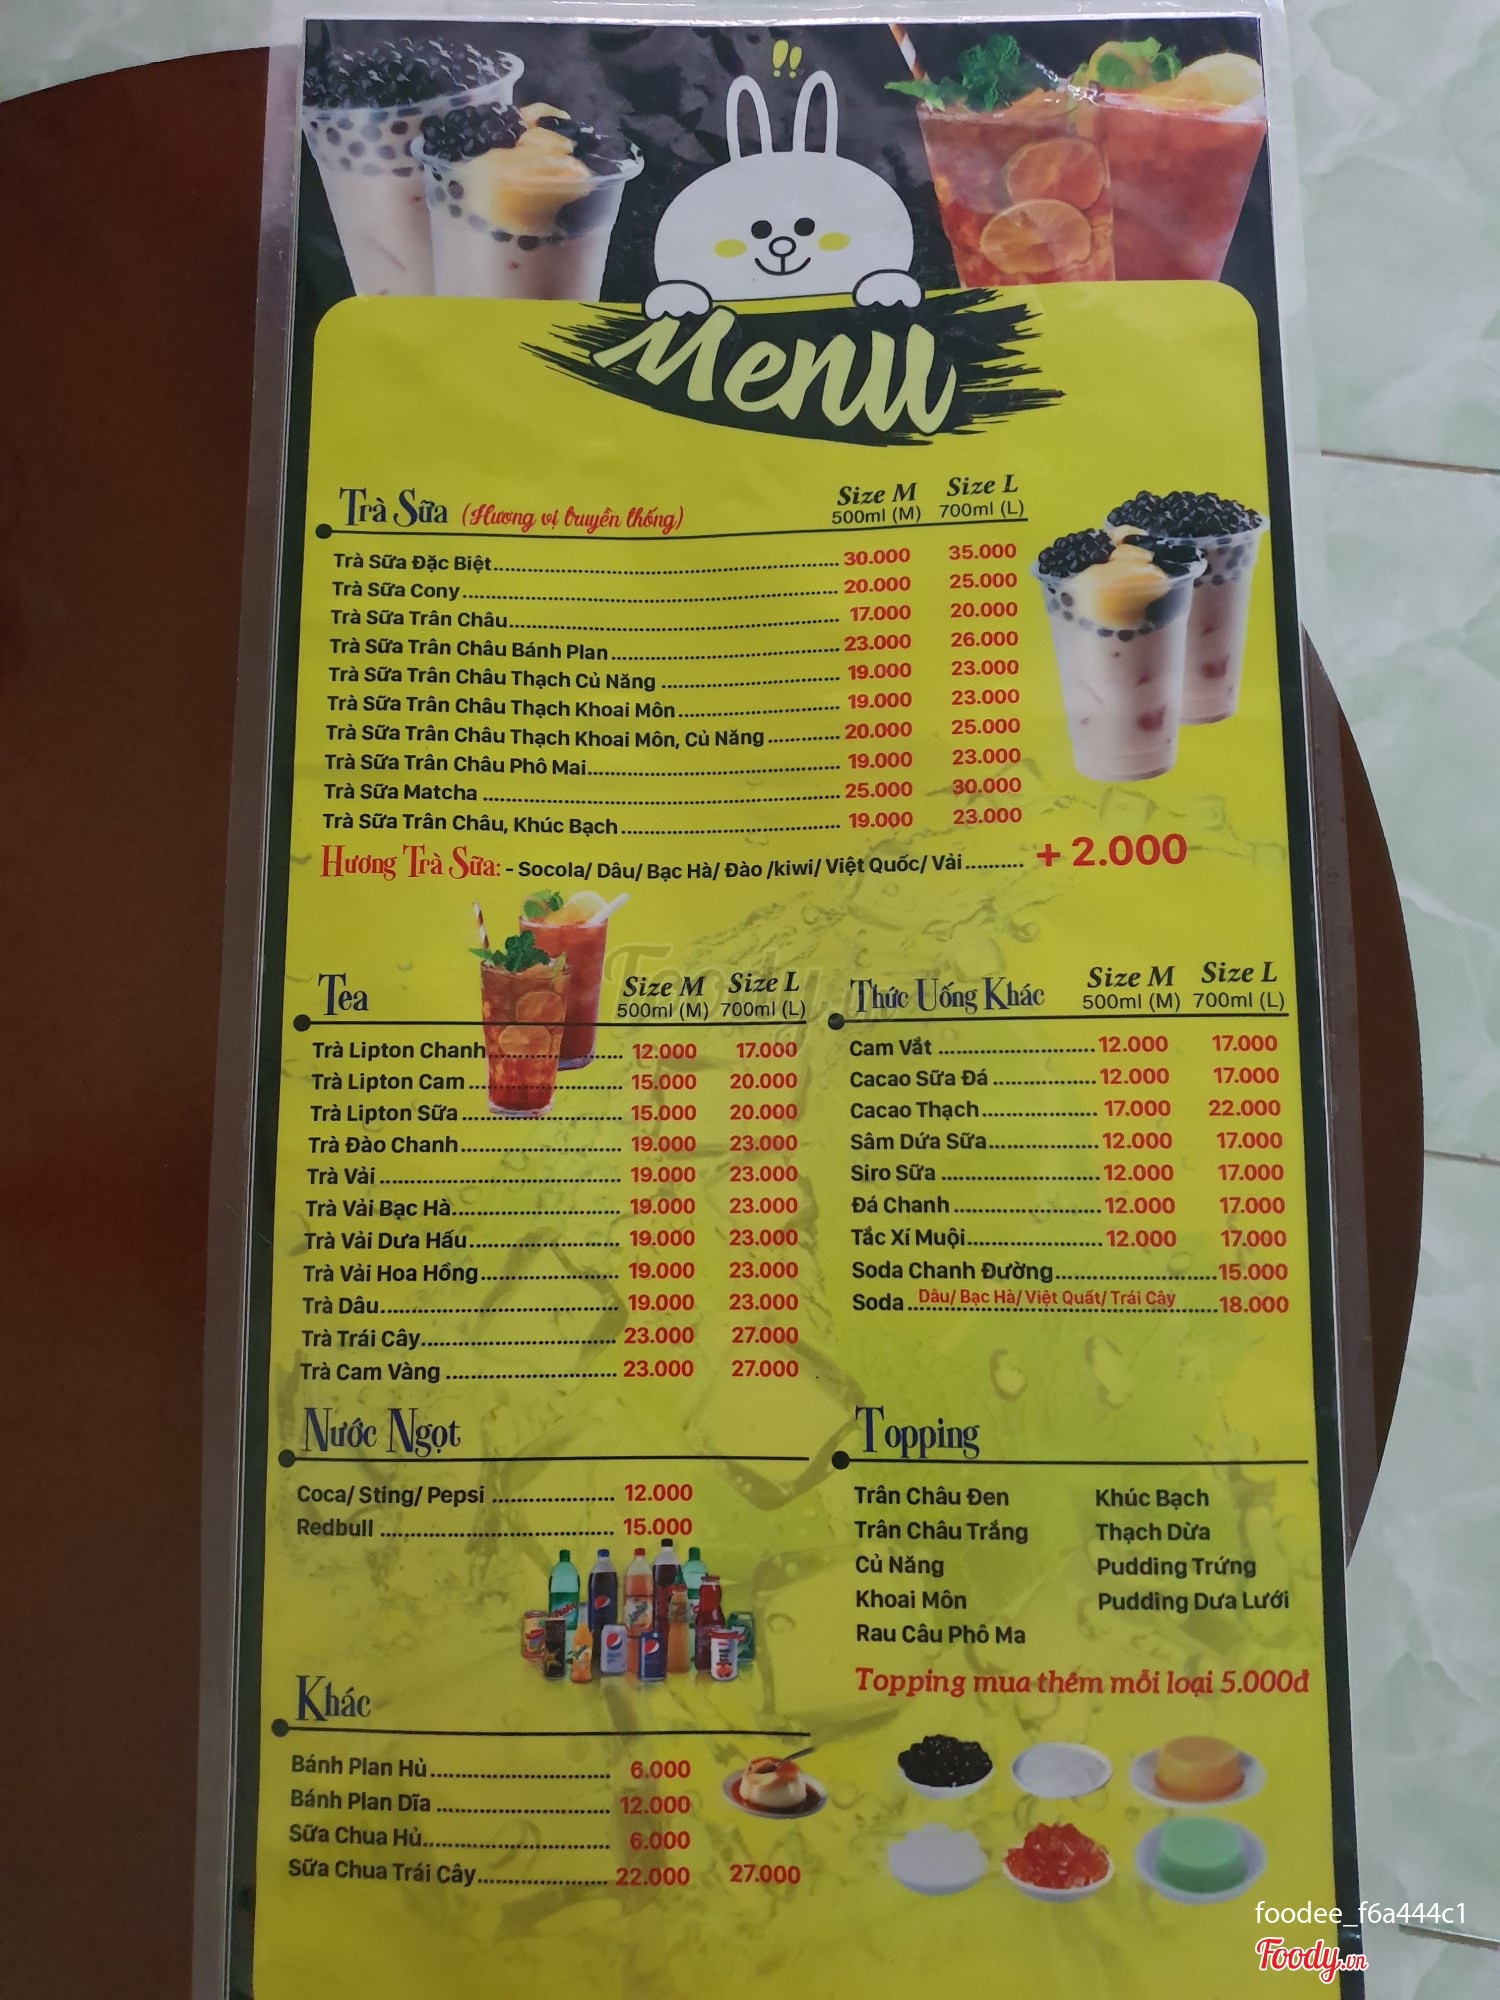 Menu
Trà Sữa (Hương vị truyền thống) Size M 500ml (M) Size L 700ml (L)
Trà Sữa Đặc Biệt 30.000 35.000
Trà Sữa Cony 20.000 25.000
Trà Sữa Trân Châu 17.000 20.000
Trà Sữa Trân Châu Bánh Plan 23.000 26.000
Trà Sữa Trân Châu Thạch Củ Năng 19.000 23.000
Trà Sữa Trân Châu Thạch Khoai Môn 19.000 23.000
Trà Sữa Trân Châu Thạch Khoai Môn, Củ Năng 20.000 25.000
Trà Sữa Trân Châu Phô Mai 19.000 23.000
Trà Sữa Matcha 25.000 30.000
Trà Sữa Trân Châu, Khúc Bạch 19.000 23.000
Hương Trà Sữa: - Socola/ Dâu/ Bạc Hà/ Đào /kiwi/ Việt Quốc/ Vải + 2.000
Tea Size M 500ml (M) Size L 700ml (L)
Trà Lipton Chanh 12.000 17.000
Trà Lipton Cam 15.000 20.000
Trà Lipton Sữa 15.000 20.000
Trà Đào Chanh 19.000 23.000
Trà Vải 19.000 23.000
Trà Vải Bạc Hà 19.000 23.000
Trà Vải Dưa Hấu 19.000 23.000
Trà Vải Hoa Hồng 19.000 23.000
Trà Dâu 19.000 23.000
Trà Trái Cây 23.000 27.000
Trà Cam Vàng 23.000 27.000
Thức Uống Khác Size M 500ml (M) Size L 700ml (L)
Cam Vắt 12.000 17.000
Cacao Sữa Đá 12.000 17.000
Cacao Thạch 17.000 22.000
Sâm Dứa Sữa 12.000 17.000
Siro Sữa 12.000 17.000
Đá Chanh 12.000 17.000
Tắc Xí Muội 12.000 17.000
Soda Chanh Đường 15.000
Soda Dâu/ Bạc Hà/ Việt Quất/ Trái Cây 18.000
Nước Ngọt
Coca/ Sting/ Pepsi 12.000
Redbull 15.000
Topping
Trân Châu Đen Khúc Bạch
Trân Châu Trắng Thạch Dừa
Củ Năng Pudding Trứng
Khoai Môn Pudding Dưa Lưới
Rau Câu Phô Ma
Topping mua thêm mỗi loại 5.000đ
Khác
Bánh Plan Hủ 6.000
Bánh Plan Dĩa 12.000
Sữa Chua Hủ 6.000
Sữa Chua Trái Cây 22.000 27.000
foodee_f6a444c1
Foody.vn